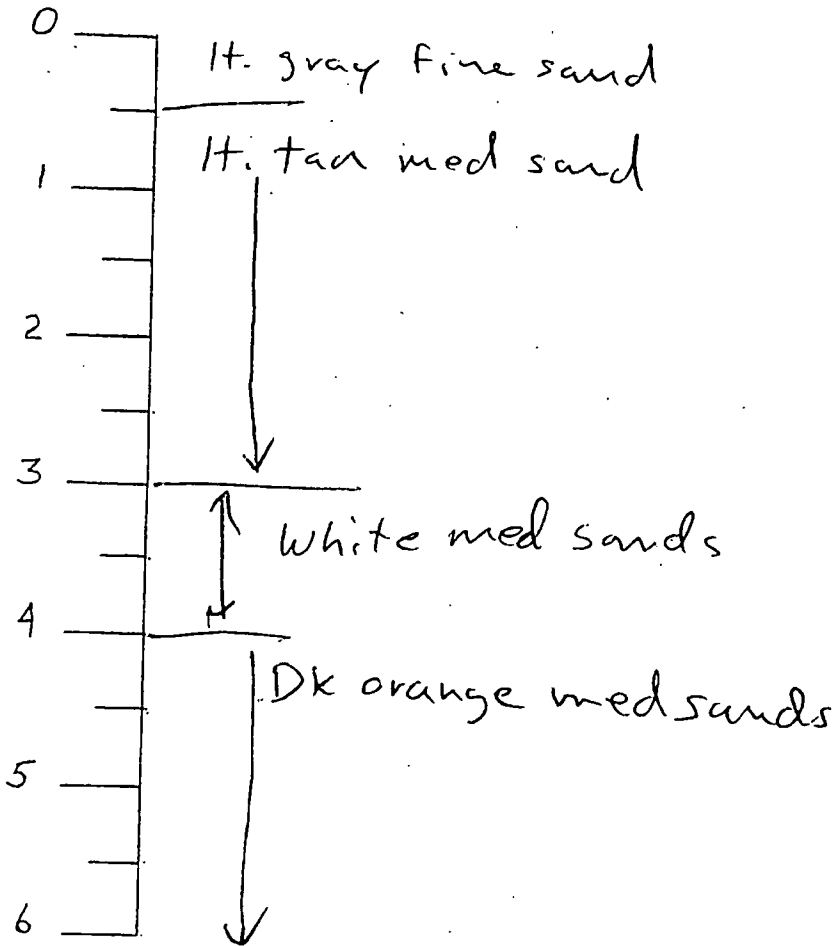 0
lt. gray fine sand
lt. tan med sand
1
2
3
white med sands
4
Dk orange med sands
5
6